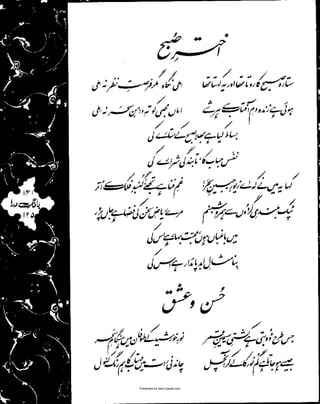 اخترِ صبح
ستارہ صبح کا روتا تھا اور یہ کہتا تھا ملی نگاہ مگر فرصتِ نظر نہ ملی
ہوئی ہے زندہ دمِ آفتاب سے ہر شے اماں مجھی کو تہِ دامنِ سحر نہ ملی
بساط کیا ہے بھلا صبح کے ستارے کی
نفس حباب کا، تابندگی شرارے کی
کہا یہ میں نے کہ اے زیورِ جبینِ سحر! غمِ فنا ہے تجھے! گنبدِ فلک سے اتر
ٹپک بلندیِ گردوں سے ہمرہِ شبنم مرے ریاضِ سخن کی فضا ہے جاں پرور
میں باغباں ہوں، محبت بہار ہے اس کی
بنا مثالِ ابد پائدار ہے اس کی
حسن و عشق
جس طرح ڈوبتی ہے کشتیِ سیمینِ قمر نورِ خورشید کے طوفان میں ہنگامِ سحر
جیسے ہو جاتا ہے گم نور کا لے کر آنچل چاندنی رات میں مہتاب کا ہم رنگ کنول
بانگِ درا